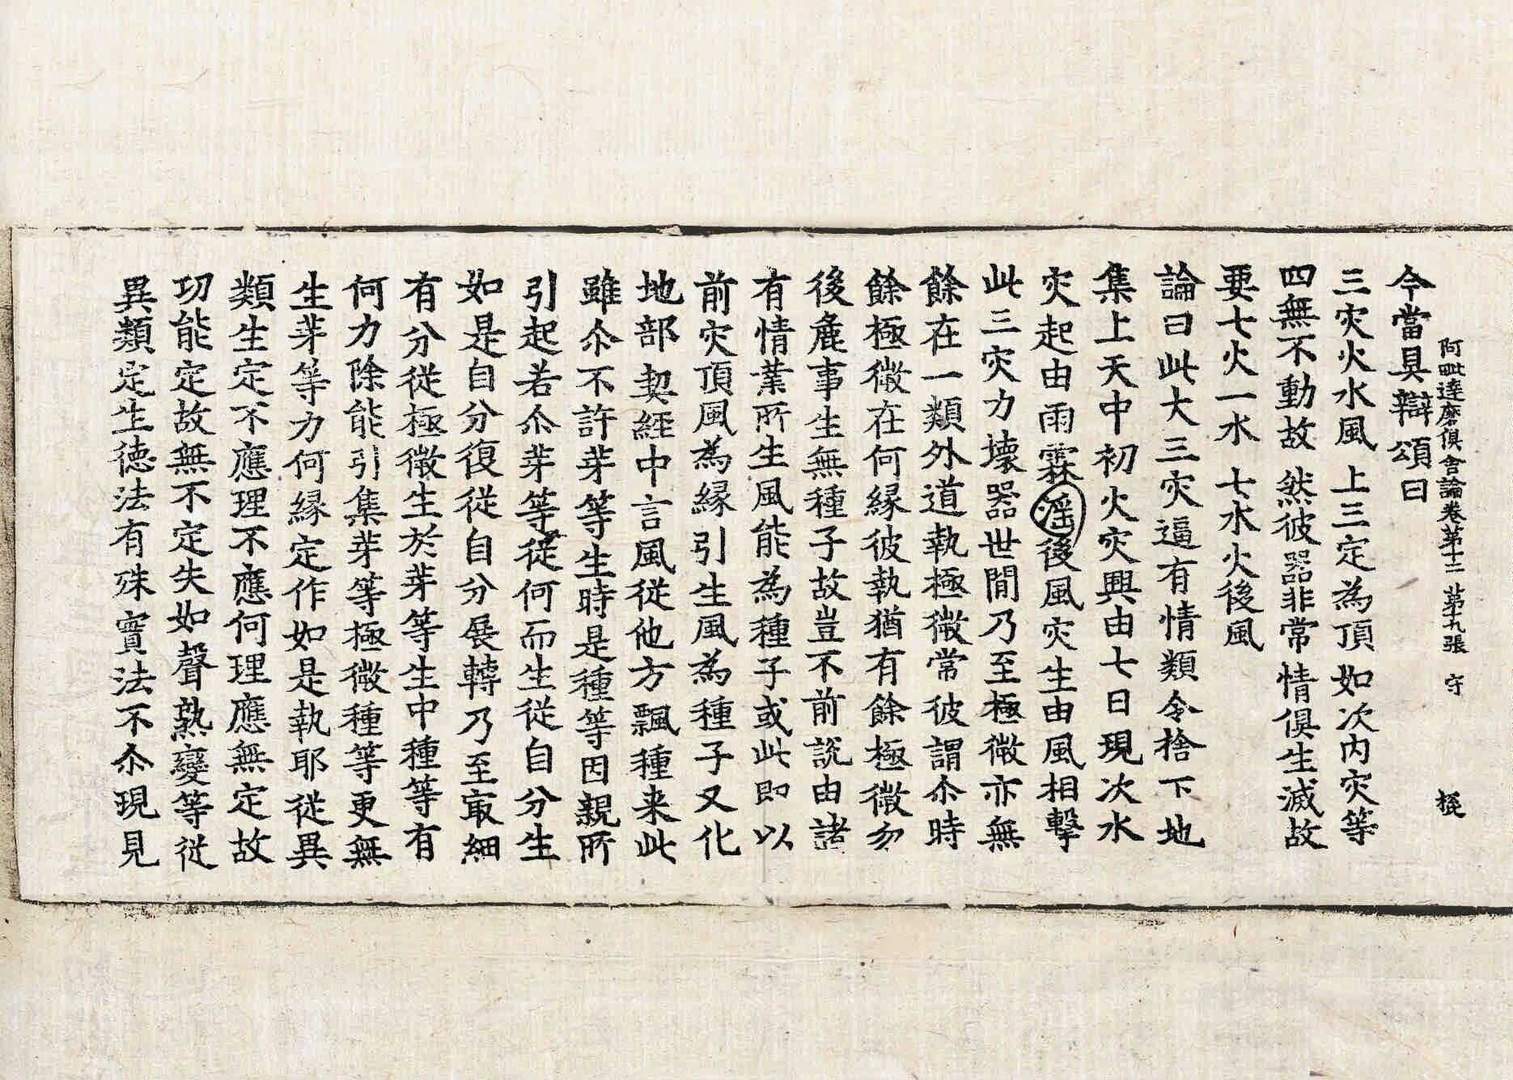 阿毗達磨俱舍論卷第十二 第十九張 守
今當具辯頌曰
三灾火水風 上三定為頂 如次內灾等
四無不動故 然彼器非常 情俱生滅故
要七火一水 七水火後風
論曰此大三灾逼有情類令捨下地
集上天中初火灾興由七日現次水
灾起由雨霖淫後風灾生由風相擊
此三灾力壞器世間乃至極微亦無
餘在一類外道執極微常彼謂尒時
餘極微在何緣彼執猶有餘極微勿
後麁事生無種子故豈不前說由諸
有情業所生風能為種子或此即以
前灾頂風為緣引生風為種子又化
地部契經中言風從他方飄種来此
雖尒不許芽等生時是種等因親所
引起若尒芽等從何而生從自分生
如是自分復從自分展轉乃至㝡細
有分從極微生於芽等生中種等有
何力除能引集芽等極微種等更無
生芽等力何緣定作如是執耶從異
類生定不應理不應何理應無定故
功能定故無不定失如聲熟變等從
異類定生德法有殊實法不尒現見